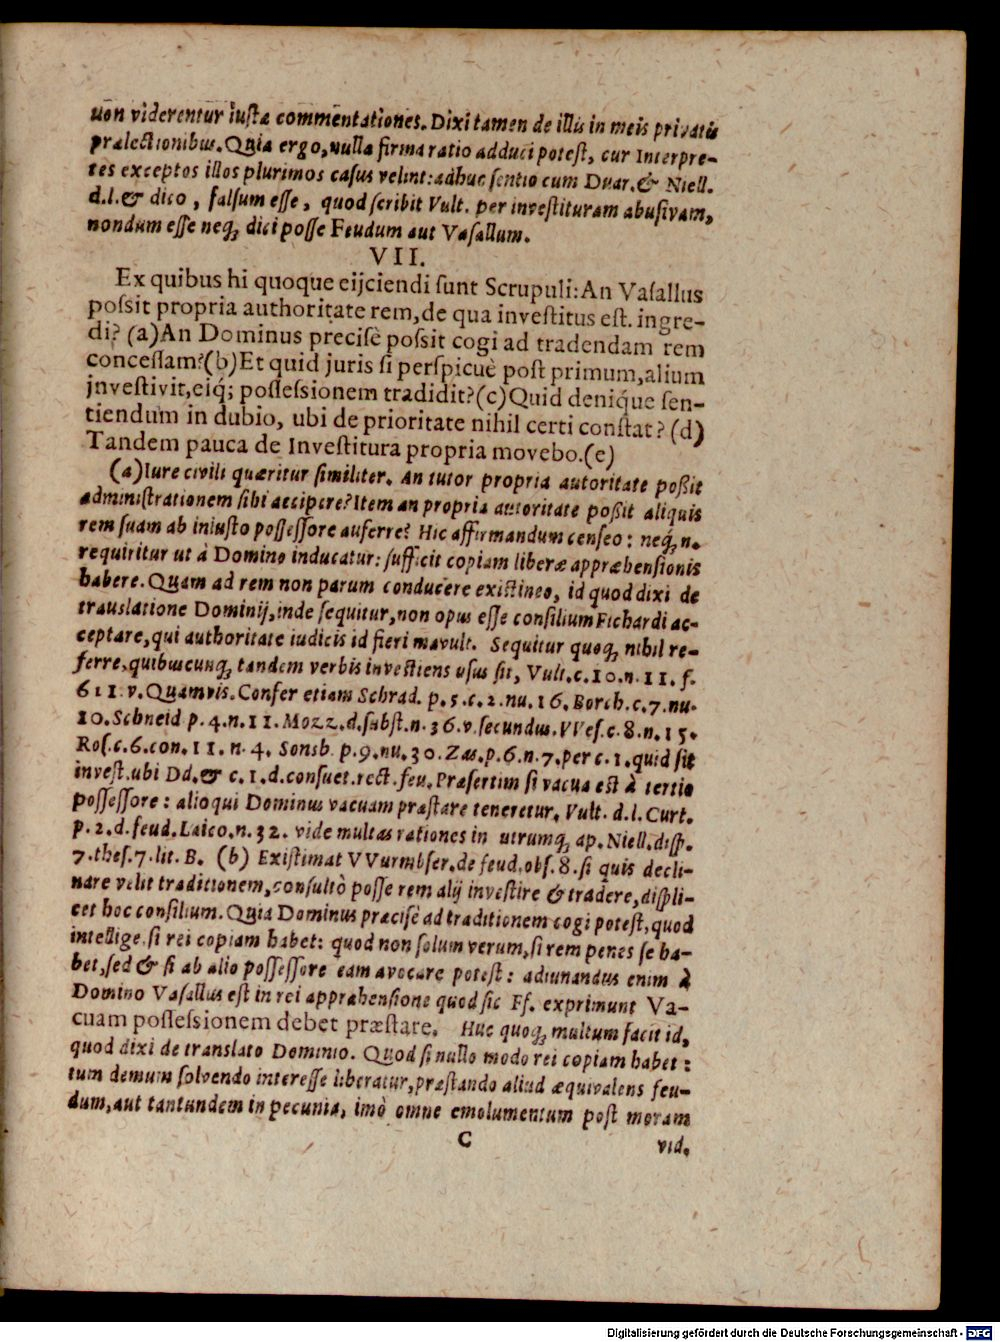 uon viderentur iustæ commentationes. Dixi tamen de illis in meis privatis
prælectionibus. Quia ergo, nulla firma ratio adduci potest, cur Interpre-
tes exceptos illos plurimos casus velint: adhuc sentio cum Duar. & Niell.
d.l. & dico, falsum esse, quod scribit Vult. per investituram abusivam,
nondum esse neq́; dici posse Feudum aut Vasallum.
VII.
Ex quibus hi quoque eijciendi sunt Scrupuli: An Vasallus
possit propria authoritate rem, de qua investitus est. ingre-
di? (a) An Dominus precisè possit cogi ad tradendam rem
concessam? (b) Et quid juris si perspicuè post primum, alium
jnvestivit, eiq́; possessionem tradidit? (c) Quid deniq́ue sen-
tiendum in dubio, ubi de prioritate nihil certi constat? (d)
Tandem pauca de Investitura propria movebo. (e)
(a) Iure civili quæritur similiter. An tutor propria autoritate poßit
administrationem sibi accipere? Item an propria autoritate poßit aliquis
rem suam ab iniusto possessore auferre? Hic affirmandum censeo: neq́; n.
requiritur ut à Domino inducatur: sufficit copiam liberæ appræhensionis
habere. Quam ad rem non parum conducere existimo, id quod dixi de
translatione Dominij, inde sequitur, non opus esse consilium Fichardi ac-
ceptare, qui authoritate iudicis id fieri mavult. Sequitur quoq́; nihil re-
ferre, quibuscunq́; tandem verbis investiens usus sit, Vult. c. 10. n. 11. f.
611. v. Quamvis. Confer etiam Schrad. p. 5. c. 2. nu. 16. Borch. c. 7. nu.
10. Schneid p. 4. n. 11. Mozz. d. subst. n. 36. v. secundus. VVes. c. 8. n. 15.
Ros. c. 6. con. 11. n. 4. Sonsb. p. 9. nu. 30. Zas. p. 6. n. 7. per c. 1. quid sit
invest. ubi Dd. & c. 1. d. consuet. rect. feu. Præsertim si vacua est à tertio
possessore: alioqui Dominus vacuam præstare teneretur, Vult. d. l. Curt.
p. 2. d. feud. Laico. n. 32. vide multas rationes in utrumq́; ap. Niell. disp.
7. thes. 7. lit. B. (b) Existimat VVurmbser. de feud. obs. 8. si quis decli-
nare velit traditionem, consultò posse rem alij investire & tradere, displi-
cet hoc consilium. Quia Dominus præcisè ad traditionem cogi potest, quod
intellige, si rei copiam habet: quod non solum verum, si rem penes se ha-
bet, sed & si ab alio possessore eam avocare potest: adiunandus enim à
Domino Vasallus est in rei appræhensione quod sic Ff. exprimunt Va-
cuam possessionem debet præstare. Huc quoq́; multum facit id,
quod dixi de translato Dominio. Quod si nullo modo rei copiam habet:
tum demum solvendo interesse liberatur, præstando aliud æquivalens feu-
dum, aut tantundem in pecunia, imò omne emolumentum post moram
C vid.
Digitalisierung gefördert durch die Deutsche Forschungsgemeinschaft - DFG